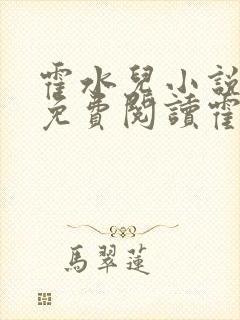 霍水兒小說
免費閱讀霍
馬翠蓮